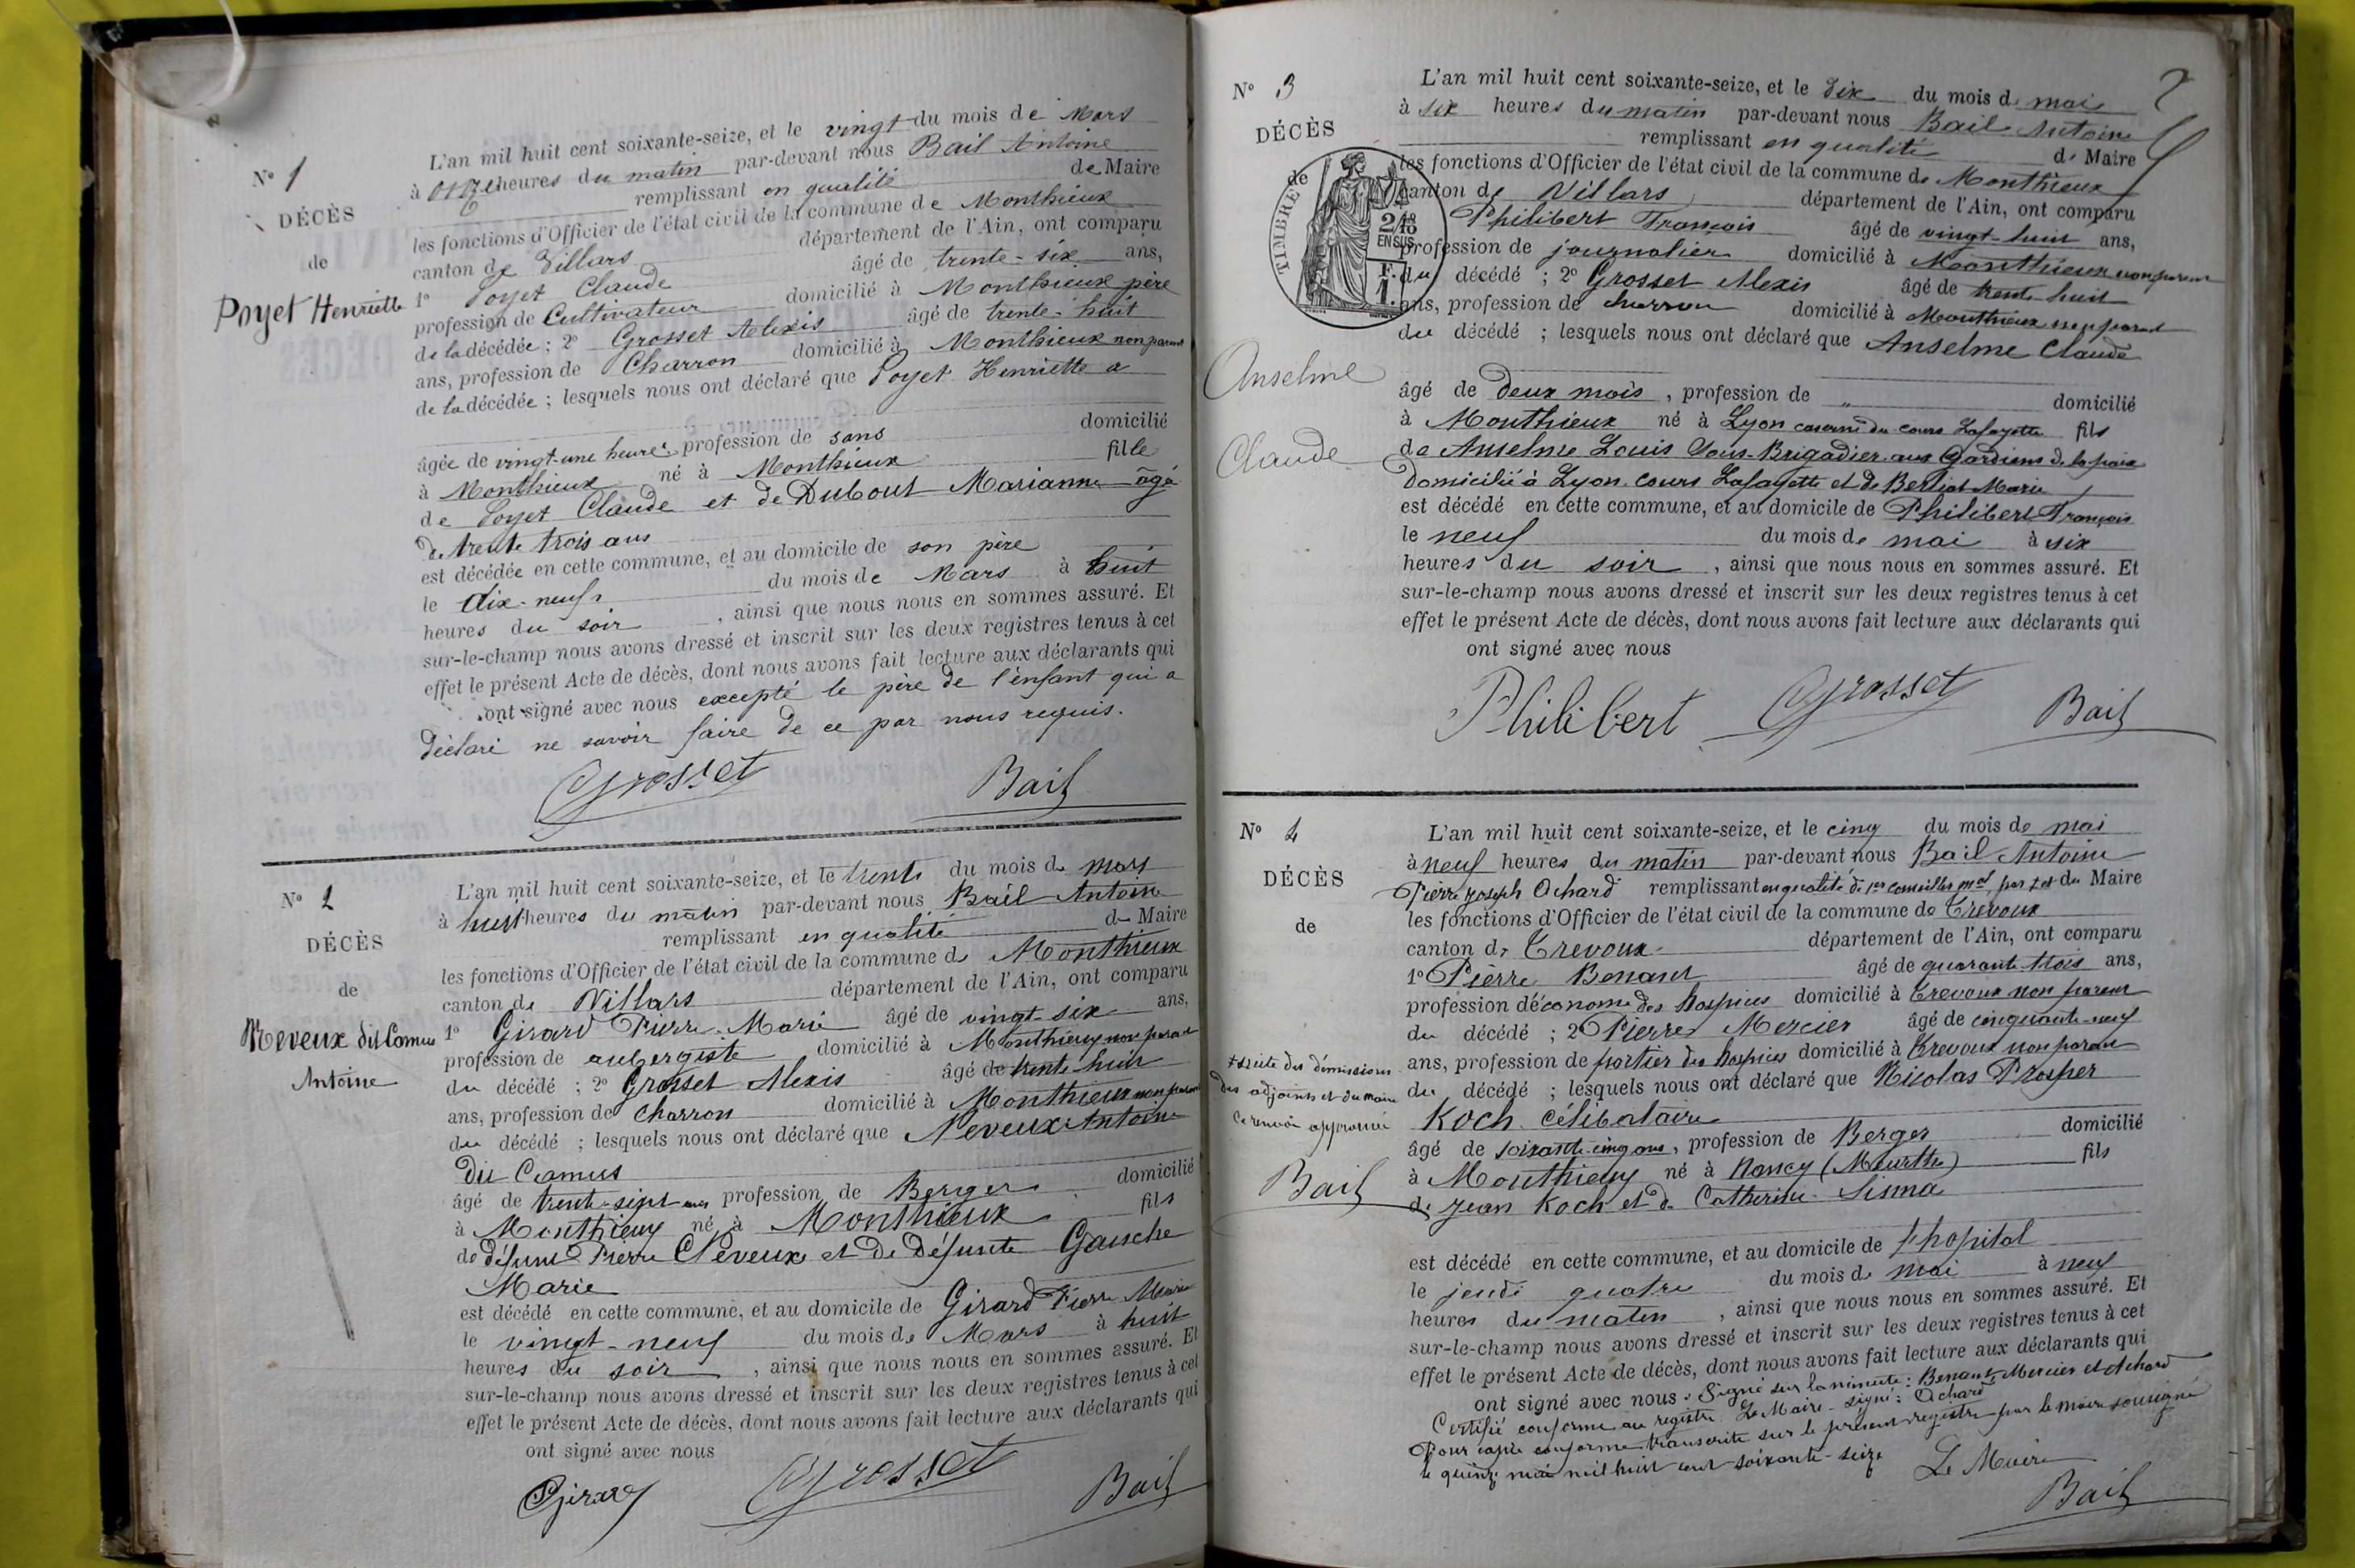 N° 1
DÉCÈS
de
Poyet Henriette
L'an mil huit cent soixante-seize, et le vingt du mois de Mars
à onze heures du matin par-devant nous Bail Antoine
remplissant en qualité de Maire
les fonctions d'Officier de l'état civil de la commune de Monthieux
canton de Villars département de l'Ain, ont comparu
1° Poyet Claude âgé de trente-six ans,
profession de Cultivateur domicilié à Monthieux père
de la décédée ; 2° Grosset Alexis âgé de trente-huit
ans, profession de Charron domicilié à Monthieux non parent
de la décédée ; lesquels nous ont déclaré que Poyet Henriette a
âgée de vingt-une heures profession de sans domicilié
à Monthieux né à Monthieux fille
de Poyet Claude et de Dubout Marianne âgé
de trente trois ans
est décédée en cette commune, et au domicile de son père
le dix-neuf du mois de Mars à huit
heures du soir , ainsi que nous nous en sommes assuré. Et
sur-le-champ nous avons dressé et inscrit sur les deux registres tenus à cet
effet le présent Acte de décès, dont nous avons fait lecture aux déclarants qui
ont signé avec nous excepté le père de l'enfant qui a
déclaré ne savoir faire de ce par nous requis.
Grosset Bail
N° 2
DÉCÈS
de
Neveux dit Camus
Antoine
L'an mil huit cent soixante-seize, et le trente du mois de mars
à huit heures du matin par-devant nous Bail Antoine
remplissant en qualité de Maire
les fonctions d'Officier de l'état civil de la commune de Monthieux
canton de Villars département de l'Ain, ont comparu
1° Girard Pierre-Marie âgé de vingt-six ans,
profession de aubergiste domicilié à Monthieux non parent
du décédé ; 2° Grosset Alexis âgé de trente-huit
ans, profession de Charron domicilié à Monthieux non parent
du décédé ; lesquels nous ont déclaré que Neveux Antoine
dit Camus
âgé de trente-sept ans profession de Berger domicilié
à Monthieux né à Monthieux fils
de défunt Pierre Neveux et de défunte Gauche
Marie
est décédé en cette commune, et au domicile de Girard Pierre Marie
le vingt-neuf du mois de Mars à huit
heures du soir , ainsi que nous nous en sommes assuré. Et
sur-le-champ nous avons dressé et inscrit sur les deux registres tenus à cet
effet le présent Acte de décès, dont nous avons fait lecture aux déclarants qui
ont signé avec nous
Girard Grosset Bail
2
N° 3
DÉCÈS
de
TIMBRE
2/10
EN SUS
F.
1.
Anselme
Claude
L'an mil huit cent soixante-seize, et le dix du mois de mai
à six heures du matin par-devant nous Bail Antoine
remplissant en qualité de Maire
les fonctions d'Officier de l'état civil de la commune de Monthieux
canton de Villars département de l'Ain, ont comparu
Philibert François âgé de vingt-huit ans,
profession de journalier domicilié à Monthieux non parent
du décédé ; 2° Grosset Alexis âgé de trente-huit
ans, profession de charron domicilié à Monthieux non parent
du décédé ; lesquels nous ont déclaré que Anselme Claude
âgé de deux mois , profession de " domicilié
à Monthieux né à Lyon caserne du cours Lafayette fils
de Anselme Louis Sous-Brigadier aux Gardiens de la paix
domicilié à Lyon cours Lafayette et de Berliat Marie
est décédé en cette commune, et au domicile de Philibert François
le neuf du mois de mai à six
heures du soir , ainsi que nous nous en sommes assuré. Et
sur-le-champ nous avons dressé et inscrit sur les deux registres tenus à cet
effet le présent Acte de décès, dont nous avons fait lecture aux déclarants qui
ont signé avec nous
Philibert Grosset Bail
N° 4
DÉCÈS
de
+ suite des démissions
des adjoints et du maire
Ce renvoi approuvé
Bail
L'an mil huit cent soixante-seize, et le cinq du mois de mai
à neuf heures du matin par-devant nous Bail Antoine
Pierre Joseph Ochard remplissant en qualité de 1er conseiller mal par + et du Maire
les fonctions d'Officier de l'état civil de la commune de Trevoux
canton de Trevoux département de l'Ain, ont comparu
1° Pierre Benant âgé de quarante-trois ans,
profession d'économe des hospices domicilié à Trevoux non parent
du décédé ; 2° Pierre Mercier âgé de cinquante-neuf
ans, profession de portier des hospices domicilié à Trevoux non parent
du décédé ; lesquels nous ont déclaré que Nicolas Prosper
Koch célibataire
âgé de soixante-cinq ans, profession de Berger domicilié
à Monthieux né à Nancy (Meurthe) fils
de Jean Koch et de Catherine Sisma
est décédé en cette commune, et au domicile de l'hopital
le jeudi quatre du mois de mai à neuf
heures du matin , ainsi que nous nous en sommes assuré. Et
sur-le-champ nous avons dressé et inscrit sur les deux registres tenus à cet
effet le présent Acte de décès, dont nous avons fait lecture aux déclarants qui
ont signé avec nous. Signé sur la minute : Benant, Mercier et Achard
Certifié conforme au registre. Le Maire - signé : Ochard
Pour copie conforme transcrite sur le présent registre par le maire soussigné
le quinze mai mil huit cent soixante-seize Le Maire
Bail